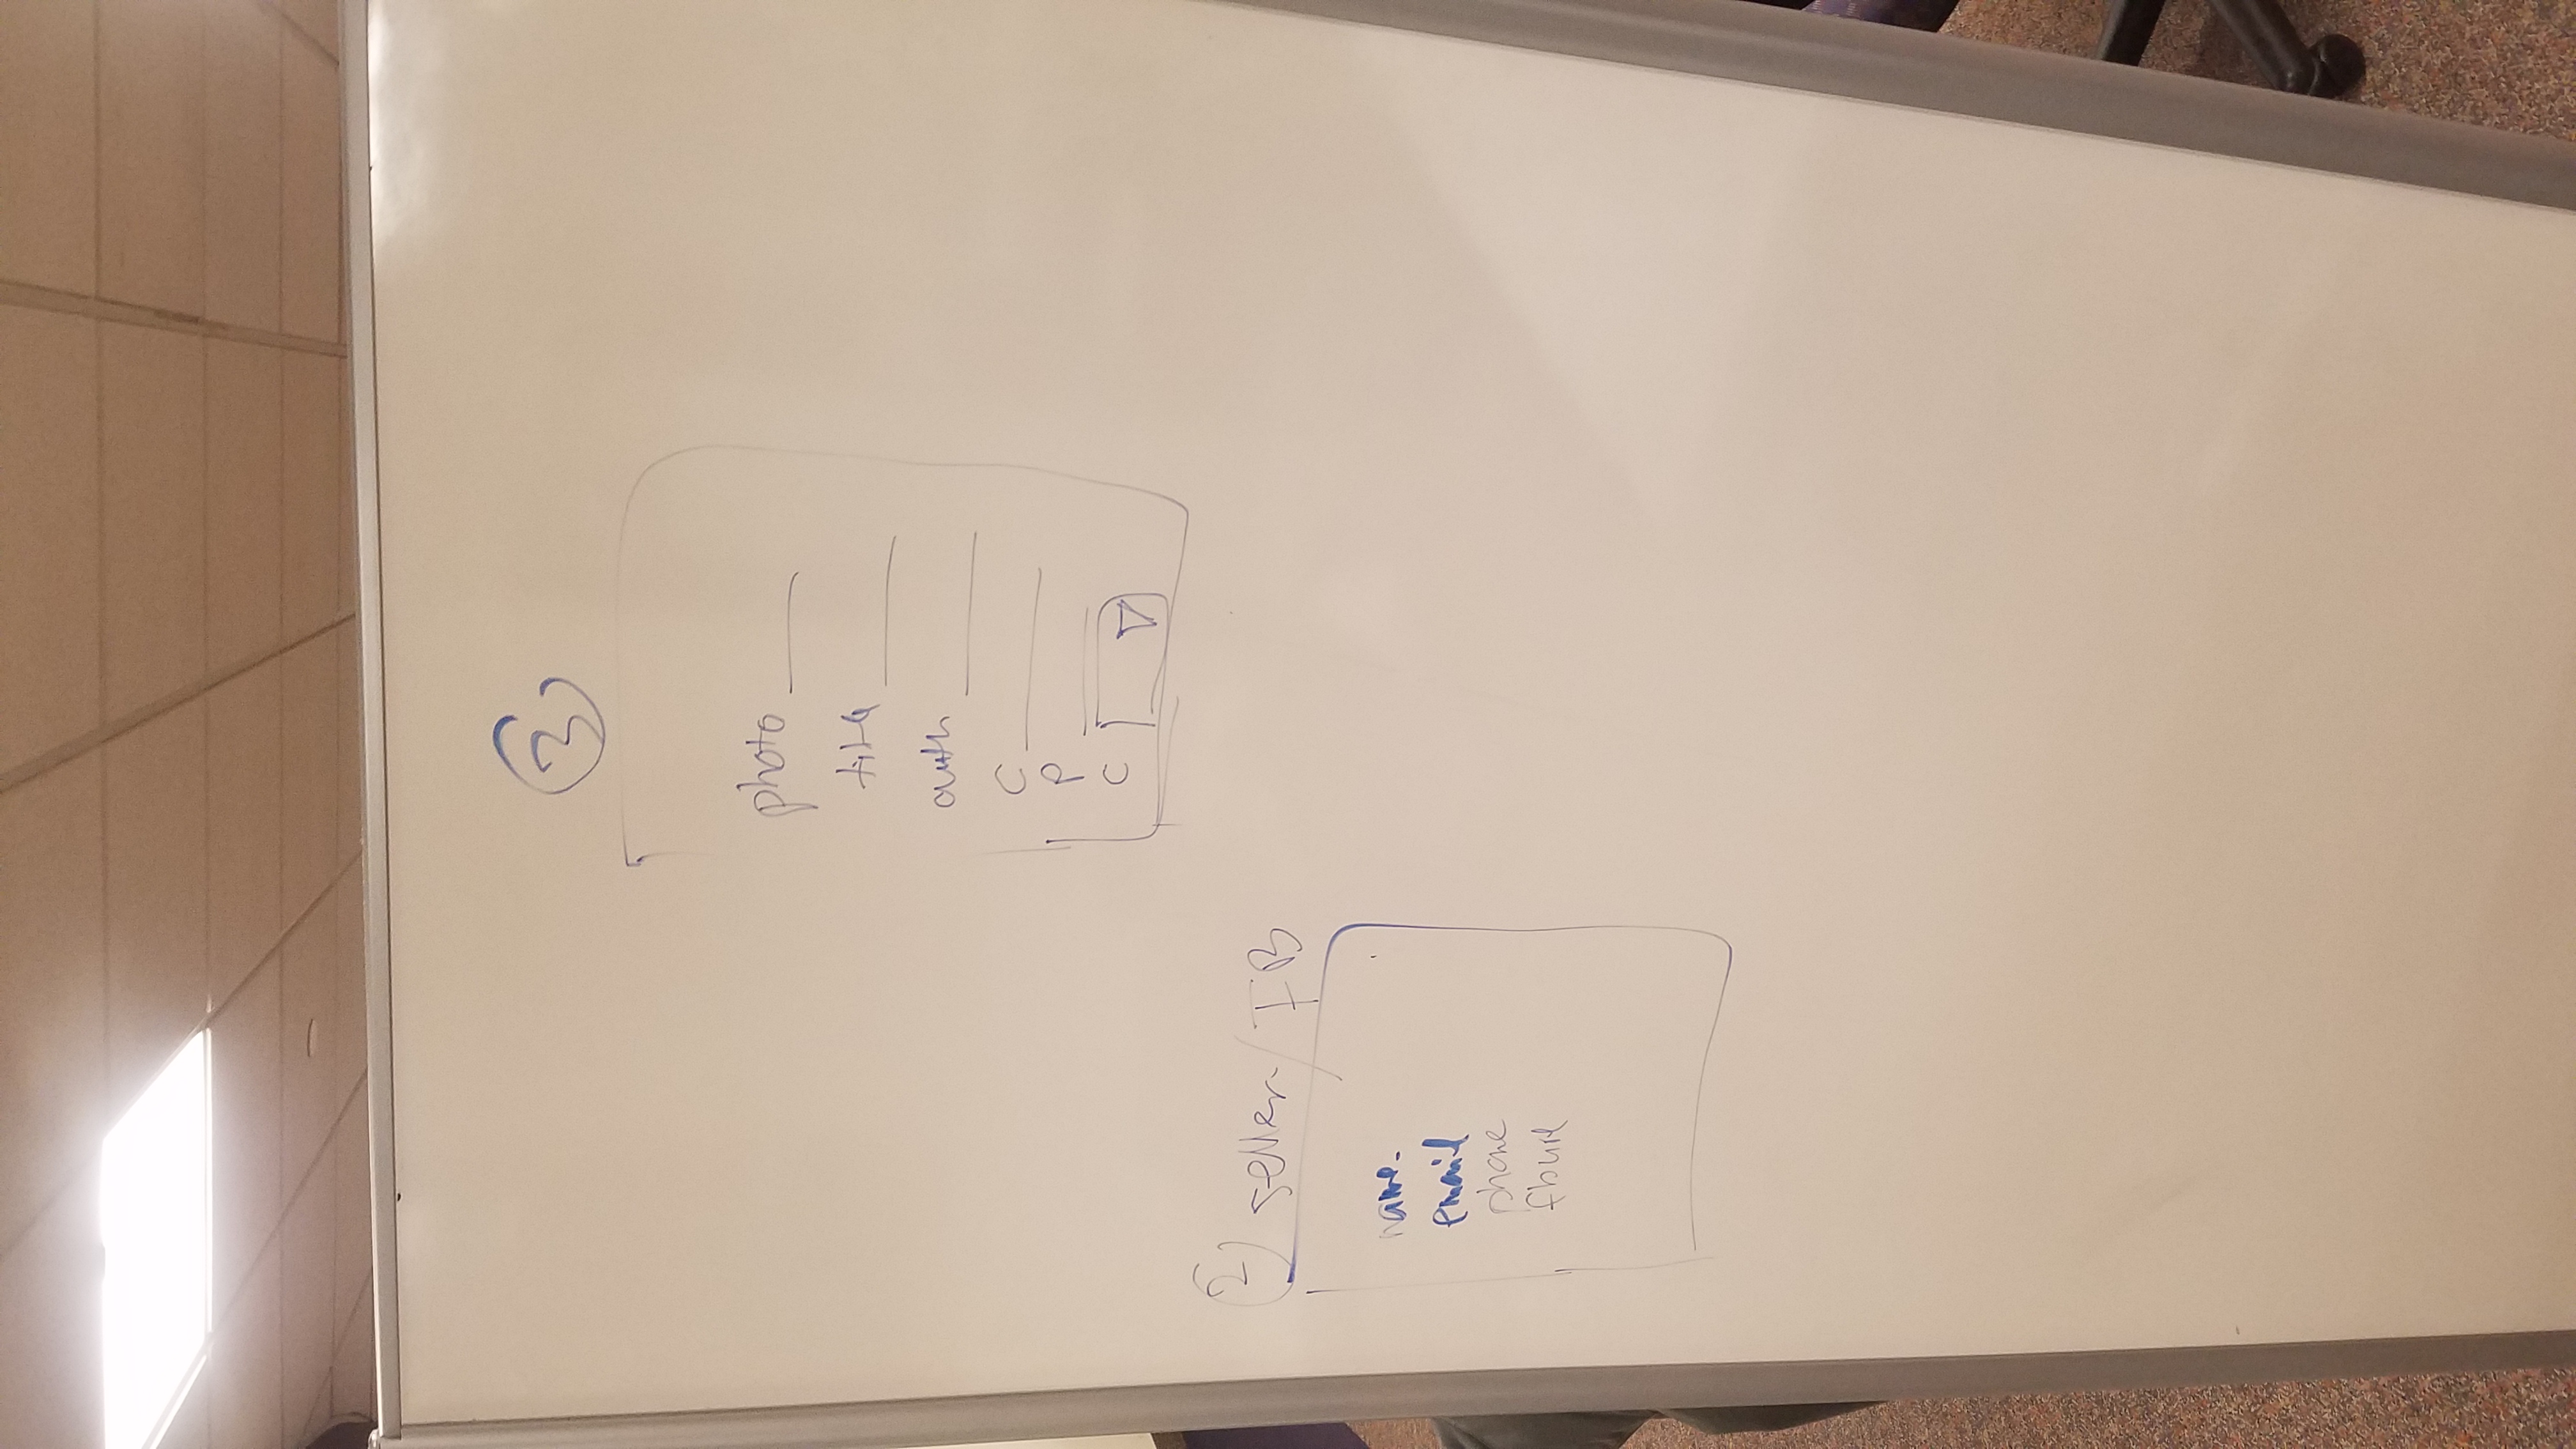 3
photo
title
auth
C
P
C
2 seller / FB
name
email
phone
fburl